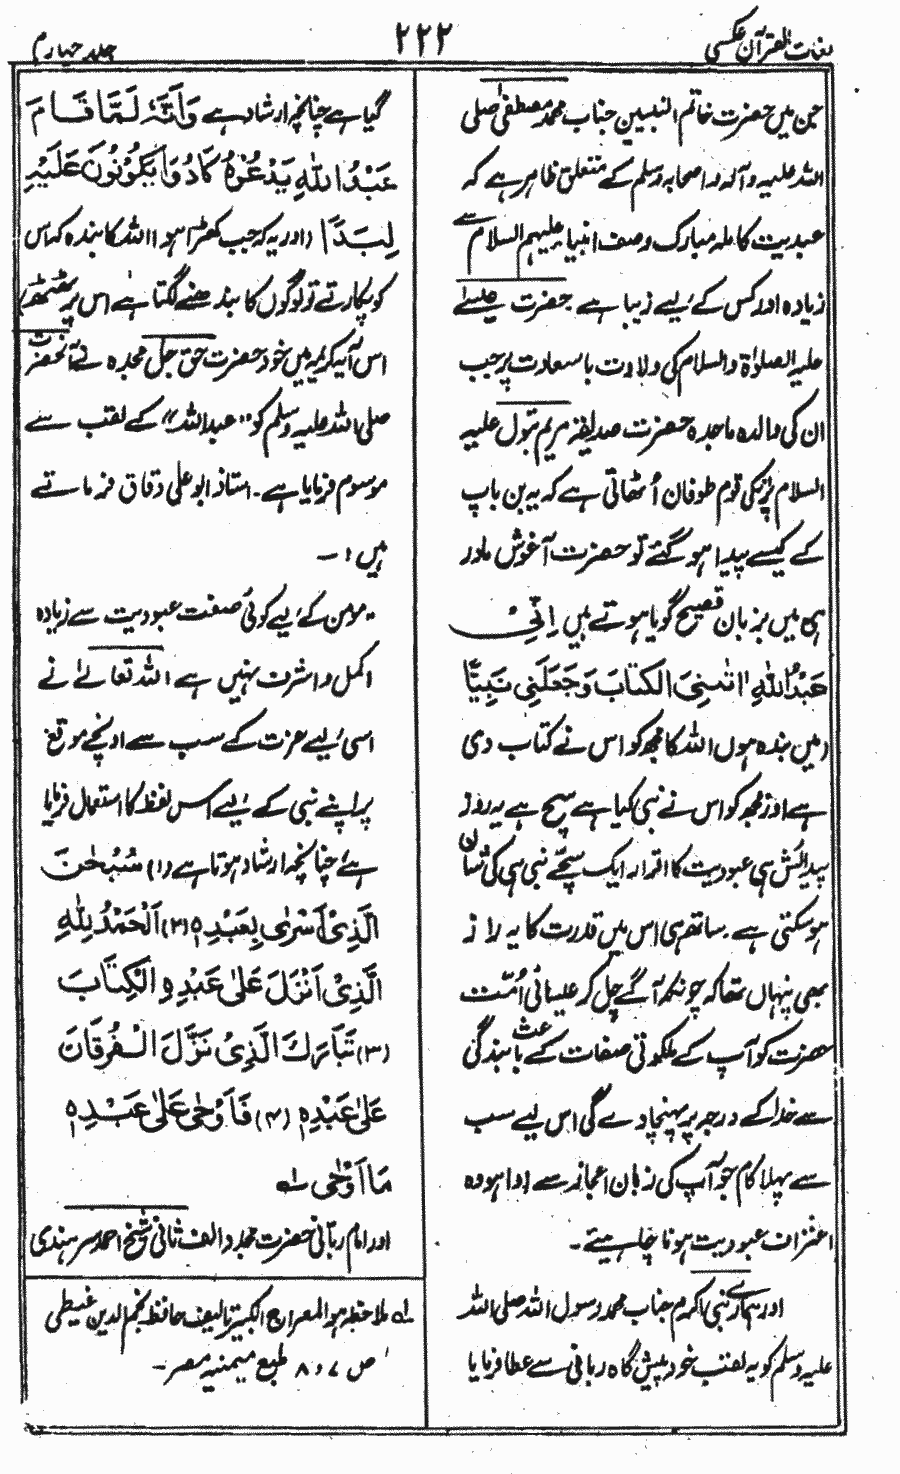 لغات القرآن عکسی
۲۲۲
جلد چہارم
جن میں حضرت خاتم النبیین جناب محمد مصطفیٰ صلی
اللہ علیہ وآلہ واصحابہ وسلم کے متعلق ظاہر ہے کہ
عبدیت کاملہ مبارک وصف انبیا علیہم السلام سے
زیادہ اور کس کے لیے زیبا ہے حضرت عیسیٰ
علیہ الصلوٰۃ والسلام کی ولادت باسعادت پر جب
ان کی والدہ ماجدہ حضرت صدیقہ مریم بتول علیہ
السلام پر کی قوم طوفان اُٹھاتی ہے کہ یہ بن باپ
کے کیسے پیدا ہو گئے تو حضرت آغوش مادر
ہی میں بزبان فصیح گویا ہوتے ہیں اِنِّیْ
عَبْدُاللّٰهِ اٰتٰىنِیَ الْكِتَابَ وَجَعَلَنِیْ نَبِیًّا
(میں بندہ ہوں اللہ کا مجھ کو اس نے کتاب دی
ہے اور مجھ کو اس نے نبی کیا ہے سچ ہے یہ روز
پیدائش ہی عبودیت کا اقرار ایک سچے نبی ہی کی شان
ہو سکتی ہے۔ ساتھ ہی اس میں قدرت کا یہ راز
بھی پنہاں تھا کہ چونکہ آگے چل کر عیسائی اُمّت
حضرت کو آپ کے ملکوتی صفات کے باعث بندگی
سے خدا کے درجہ پر پہنچا دے گی اس لیے سب
سے پہلا کام جو آپ کی زبان اعجاز سے ادا ہو وہ
اعتراف عبودیت ہونا چاہیئے۔
اور ہمارے نبی اکرم جناب محمد رسول اللہ صلی اللہ
علیہ وسلم کو یہ لقب خود پیش گاہ ربانی سے عطا فرمایا
گیا ہے چنانچہ ارشاد ہے وَاَنَّهٗ لَمَّا قَامَ
عَبْدُ اللّٰهِ یَدْعُوْهُ كَادُوْا یَكُوْنُوْنَ عَلَیْهِ
لِبَدًا (اور یہ کہ جب کھڑا ہوا اللہ کا بندہ کہ اس
کو پکارتے تو لوگوں کا بندھنے لگتا ہے اس پر ٹھٹھ)
اس آیۂ کریمہ میں خود حضرت حق جل مجدہ نے آنحضرت
صلی اللہ علیہ وسلم کو "عبداللہ" کے لقب سے
موسوم فرمایا ہے۔ استاذ ابو علی دقاق فرماتے
ہیں :۔
"مومن کے لیے کوئی صفت عبودیت سے زیادہ
اکمل و اشرف نہیں ہے اللہ تعالیٰ نے
اسی لیے عزت کے سب سے اونچے موقع
پر اپنے نبی کے لیے اس لفظ کا استعمال فرمایا
ہے چنانچہ ارشاد ہوتا ہے (۱) سُبْحٰنَ
الَّذِیْ اَسْرٰی بِعَبْدِهٖ (۲) اَلْحَمْدُ لِلّٰهِ
الَّذِیْ اَنْزَلَ عَلٰی عَبْدِهِ الْكِتَابَ
(۳) تَبَارَكَ الَّذِیْ نَزَّلَ الْفُرْقَانَ
عَلٰی عَبْدِهٖ (۴) فَاَوْحٰی عَلٰی عَبْدِهٖ
مَا اَوْحٰی لہ
اور امام ربّانی حضرت مجدد الف ثانی شیخ احمد سرہندی
لہ ملاحظہ ہو المعراج الکبیر تالیف حافظ نجم الدین غیطی
ص ۷ و ۸ طبع میمنیہ مصر۔